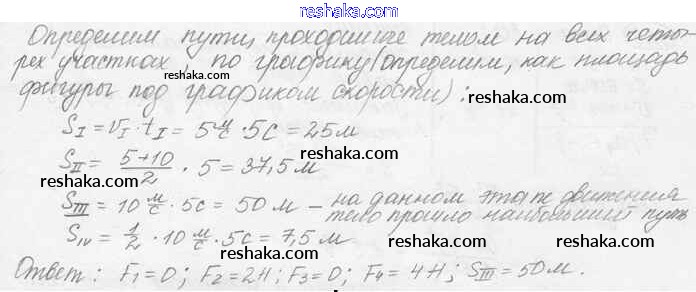 reshaka.com
Определим пути, проходимые телом на всех четы-
рех участках, по графику (определим, как площадь
reshaka.com
фигуры под графиком скорости):
reshaka.com
S_I = v_I · t_I = 5 м/с · 5с = 25 м
reshaka.com
S_II = (5+10)/2 · 5 = 37,5 м
reshaka.com
S_III = 10 м/с · 5с = 50 м – на данном этапе движения
тело прошло наибольший путь
reshaka.com
S_IV = 1/2 · 10 м/с · 5с = 7,5 м
reshaka.com
Ответ: F₁ = 0; F₂ = 2Н; F₃ = 0; F₄ = 4Н; S_III = 50 м.
reshaka.com